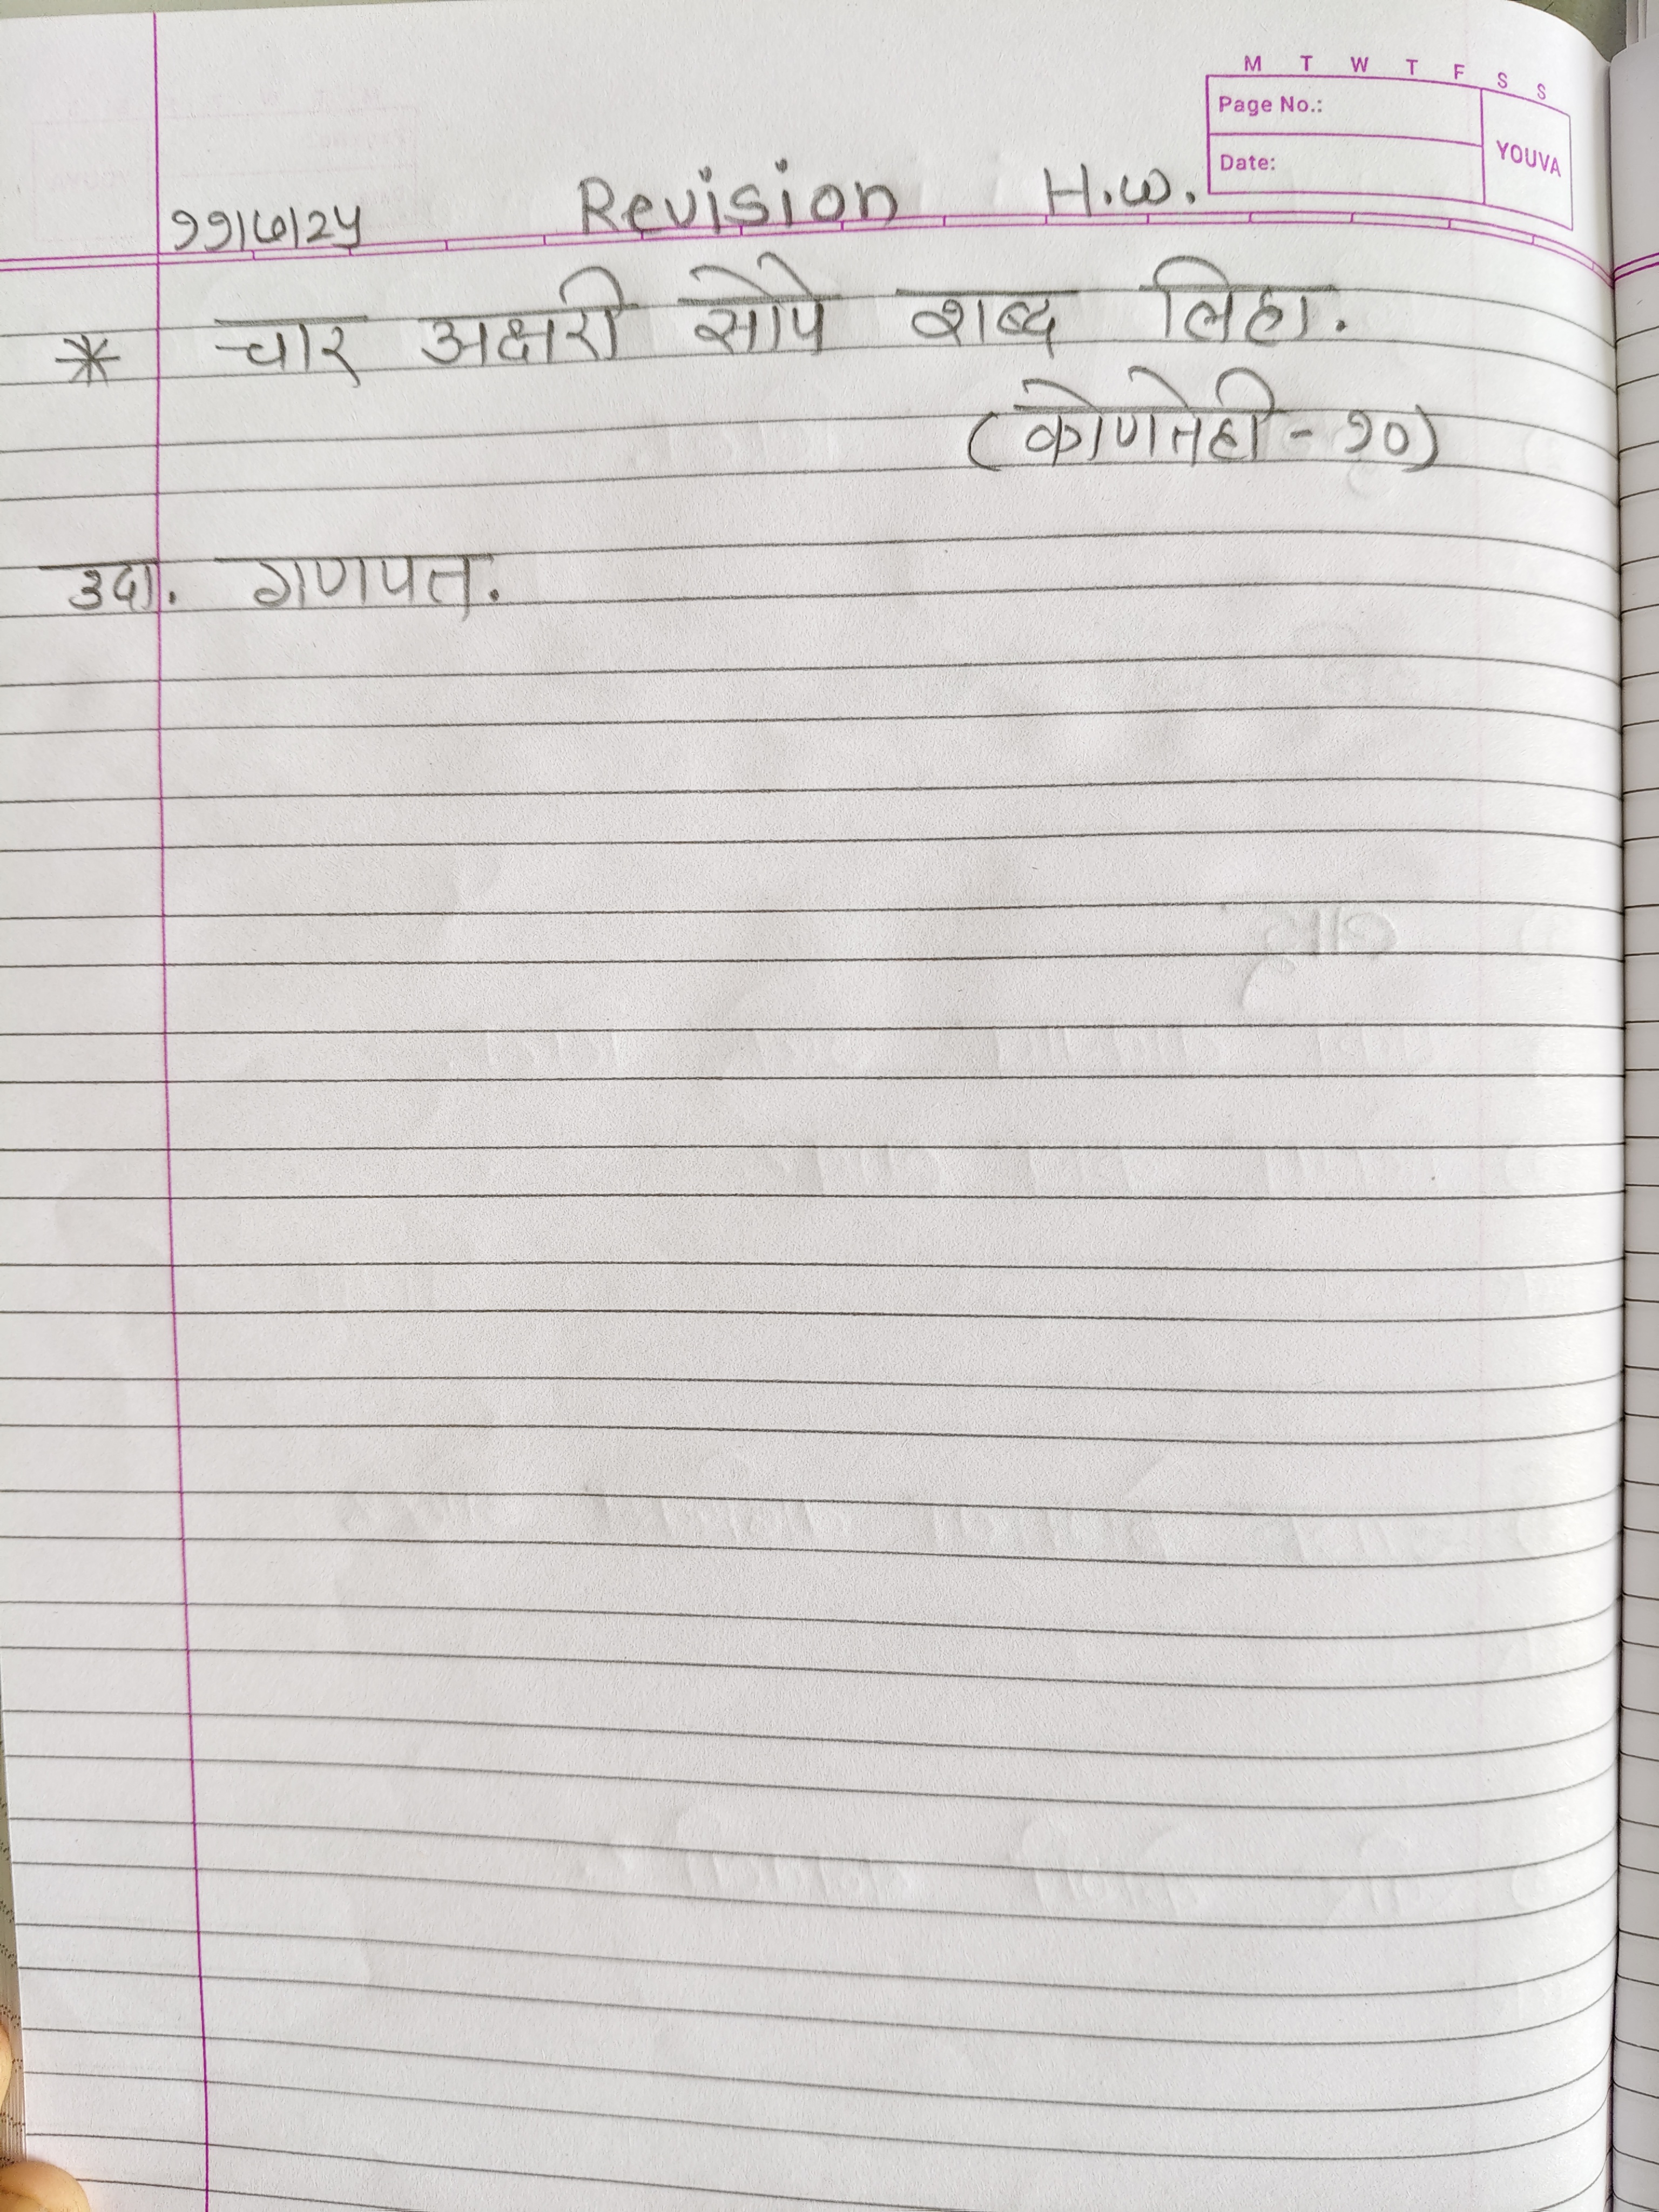 M T W T F S S
Page No.:
Date:
YOUVA
११/७/२५ Revision H.W.
* चार अक्षरी सोपे शब्द लिहा.
(कोणतेही - १०)
उदा. गणपत.